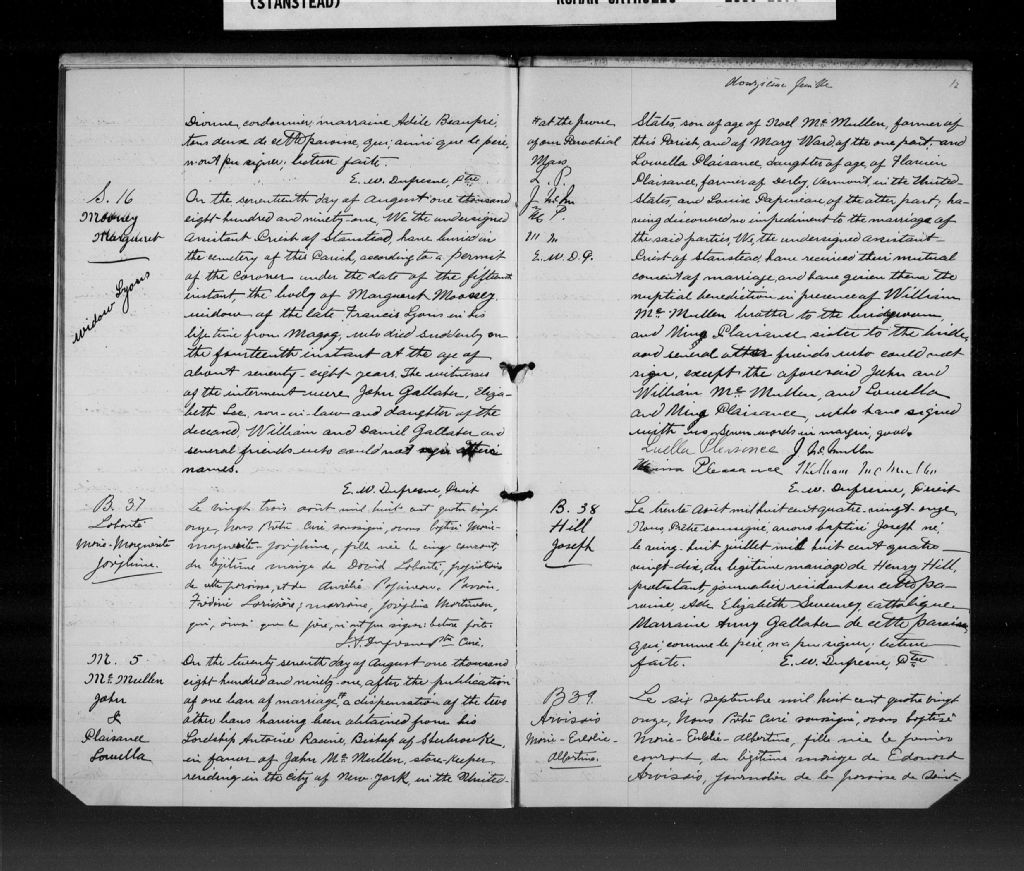 (STANSTEAD)
ROMAN CATHOLIC
Divine, cordonnier, marraine Adèle Beaupré,
tous deux de cette paroisse, qui, ainsi que le père,
n'ont pu signer; lecture faite.
E. W. Dufresne, Ptre
S. 16
Mooney
Margueret
widow Lyons
On the seventeenth day of August one thousand
eight hundred and ninety-one, We the undersigned
Assistant Priest of Stanstead, have buried in
the cemetery of this Parish, according to a permit
of the Coroner under the date of the fifteenth
instant, the body of Margueret Mooney
widow of the late Francis Lyons in his
lifetime from Magog, who died suddenly on
the fourteenth instant at the age of
about seventy-eight years. The witnesses
of the interment were John Gallaher, Eliza-
beth Lee, son-in-law and daughter of the
deceased, William and Daniel Gallaher and
several friends who could not sign their
names.
E. W. Dufresne, Priest
B. 37
Labonté
Marie-Marguerite
Joséphine.
Le vingt trois août mil huit cent quatre vingt
onze, Nous Prêtre Curé soussigné, avons baptisé Marie-
Marguerite-Joséphine, fille née le cinq courant,
du légitime mariage de David Labonté,
de cette paroisse, et de Aurélie Papineau. Parrain,
Frédéric Larivière; marraine, Joséphine
qui, ainsi que le père, n'ont pu signer: lecture faite.
Dufresne Ptre Curé.
M. 5.
Mc Mullen
John
&
Plaisance
Louella
On the twenty seventh day of August one thousand
eight hundred and ninety-one, after the publication
of one ban of marriage, # a dispensation of the two
other bans having been obtained from his
Lordship Antoine Racine, Bishop of Sherbrooke,
in favor of John Mc Mullen, store-keeper
residing in the city of New York, in the United-
Douzième feuille
12
# at the prone
of our Parochial
Mass
L. P.
J. McM
W. P.
M M
E. W. D. P.
States, son of age of Noel Mc Mullen, farmer of
this Parish, and of Mary Ward of the one part; and
Louella Plaisance, daughter of age of Flavien
Plaisance, farmer of Derby, Vermont, in the United-
States, and Louise Papineau of the other part; ha-
ving discovered no impediment to the marriage of
the said parties, We, the undersigned assistant-
Priest of Stanstead, have received their mutual
consent of marriage, and have given them the
nuptial benediction in presence of William
Mc Mullen brother to the bridegroom,
and Mina Plaisance sister to the bride,
and several other friends who could not
sign, except the aforesaid John and
William Mc Mullen, and Louella
and Mina Plaisance, who have signed
with us. Seven words in margin, good.
Luella Plaisance J. McMullen
Plessance William McMullen
E. W. Dufresne, Priest
B. 38
Hill
Joseph
Le trente août mil huit cent quatre-vingt-onze,
Nous Prêtre soussigné avons baptisé Joseph né,
le vingt-huit juillet mil huit cent quatre-
vingt-dix, du légitime mariage de Henry Hill,
protestant, journalier résidant en cette pa-
roisse, et de Elizabeth Sweeney catholique.
Marraine Anny Gallaher de cette paroisse,
qui, comme le père, n'a pu signer; lecture
faite. E. W. Dufresne, Ptre
B 39
Arvisais
Marie-Exilda-
Albertine.
Le six septembre mil huit cent quatre vingt
onze, Nous Prêtre Curé soussigné, avons baptisé
Marie-Exilda-Albertine, fille née le premier
courant, du légitime mariage de Edouard
Arvisais, journalier de la paroisse de Saint-